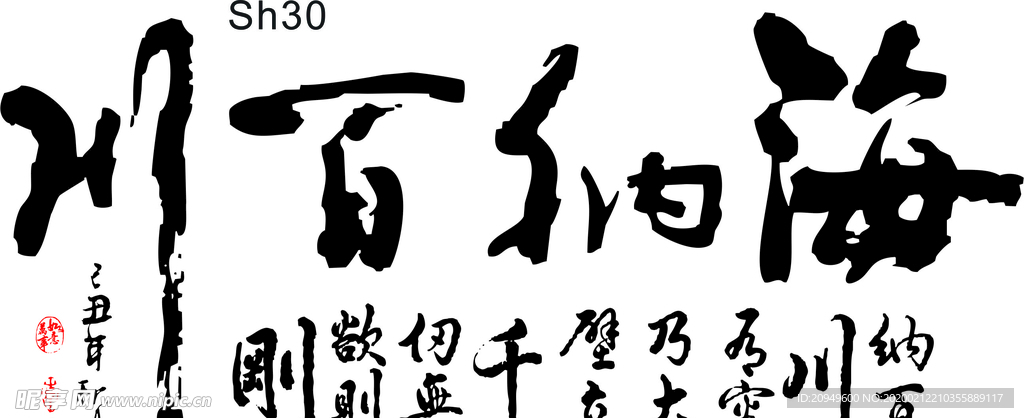 Sh30
海納百川
納百
川
有容
乃大
壁立
千
仞無
欲則
剛
己丑年
昵享网 www.nipic.com
ID:20949600 NO:20200212210355889117